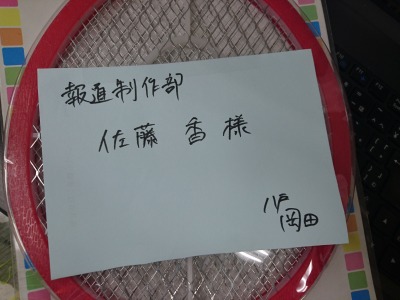 報道制作部
佐藤 香様
八戸
岡田